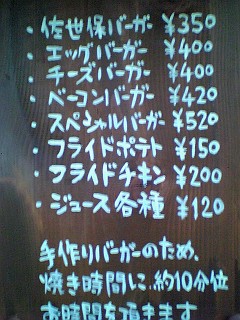 ・佐世保バーガー ¥350
・エッグバーガー ¥400
・チーズバーガー ¥400
・ベーコンバーガー ¥420
・スペシャルバーガー ¥520
・フライドポテト ¥150
・フライドチキン ¥200
・ジュース各種 ¥120
手作りバーガーのため、
焼き時間に、約10分位
お時間を頂きます